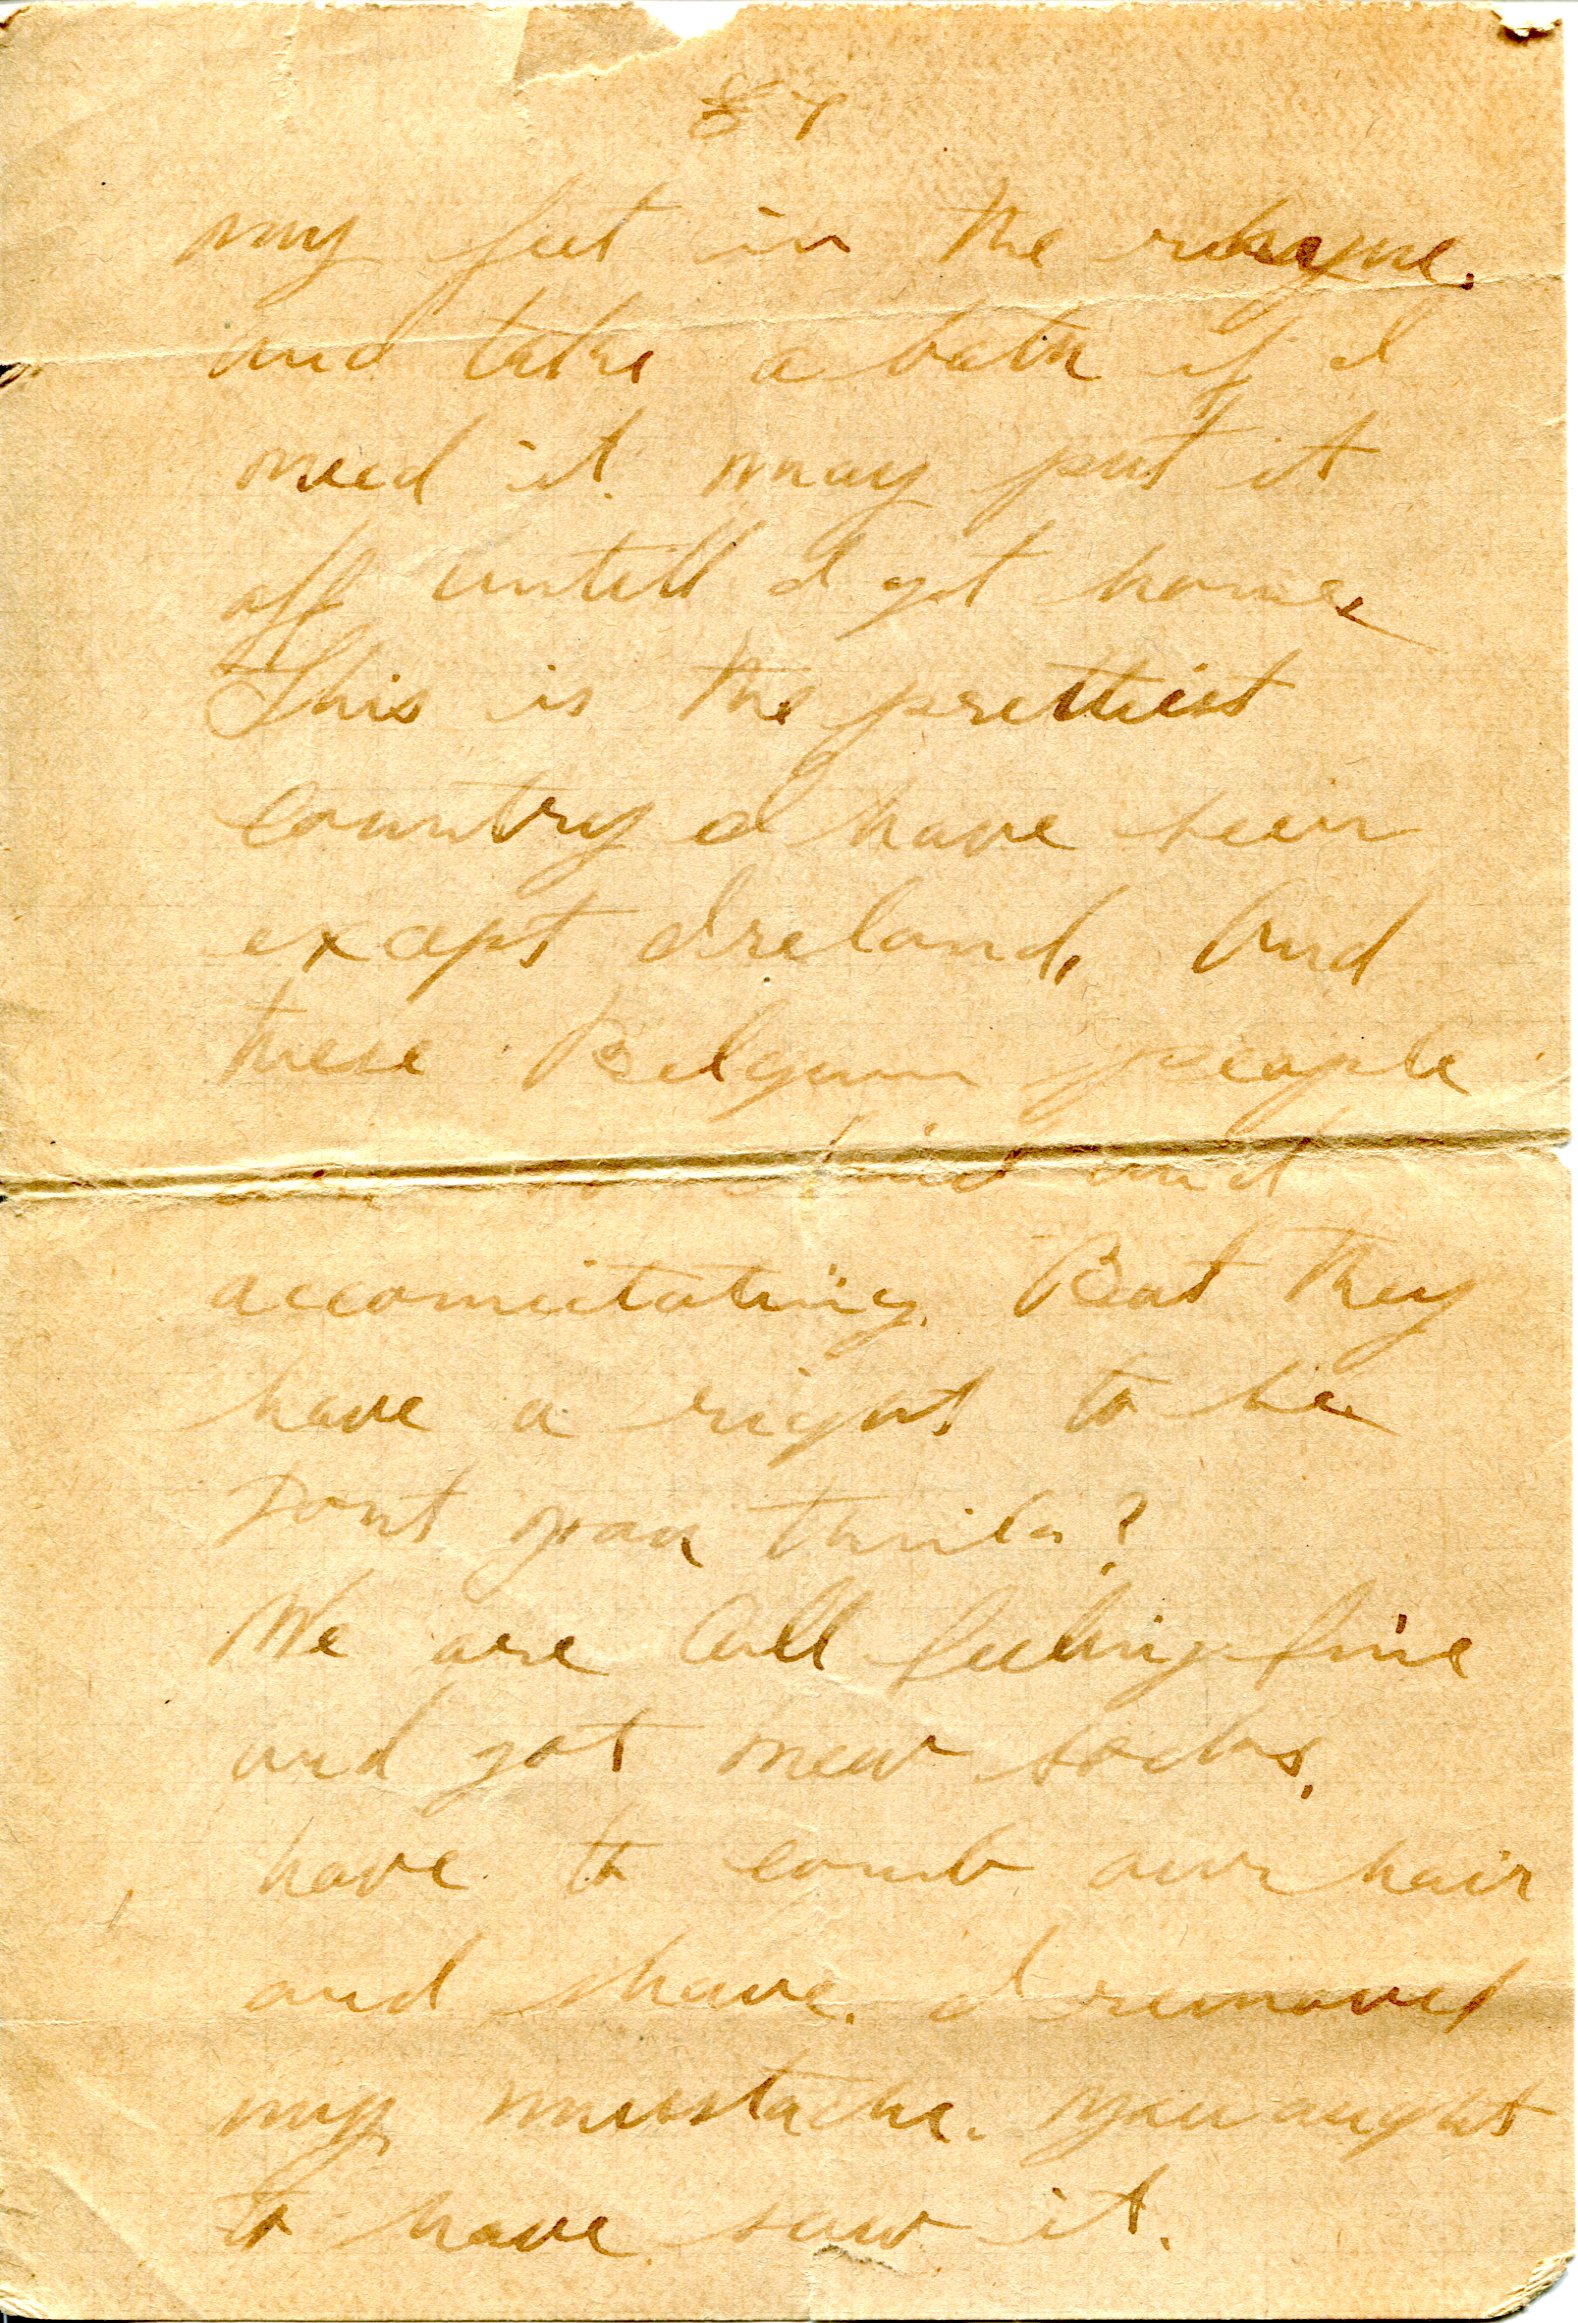 my feet in the rhyne.
and take a bath if I
need it. may put it
off untill I get home.
This is the prettiest
Country I have seen
except Ireland, And
these Belgium people
so kind and
accomitating. But they
have a right to be
Dont you think?
We are all feeling fine
and got new socks,
have to comb our hair
and shave. I removed
my musstache. you aught
to have saw it.